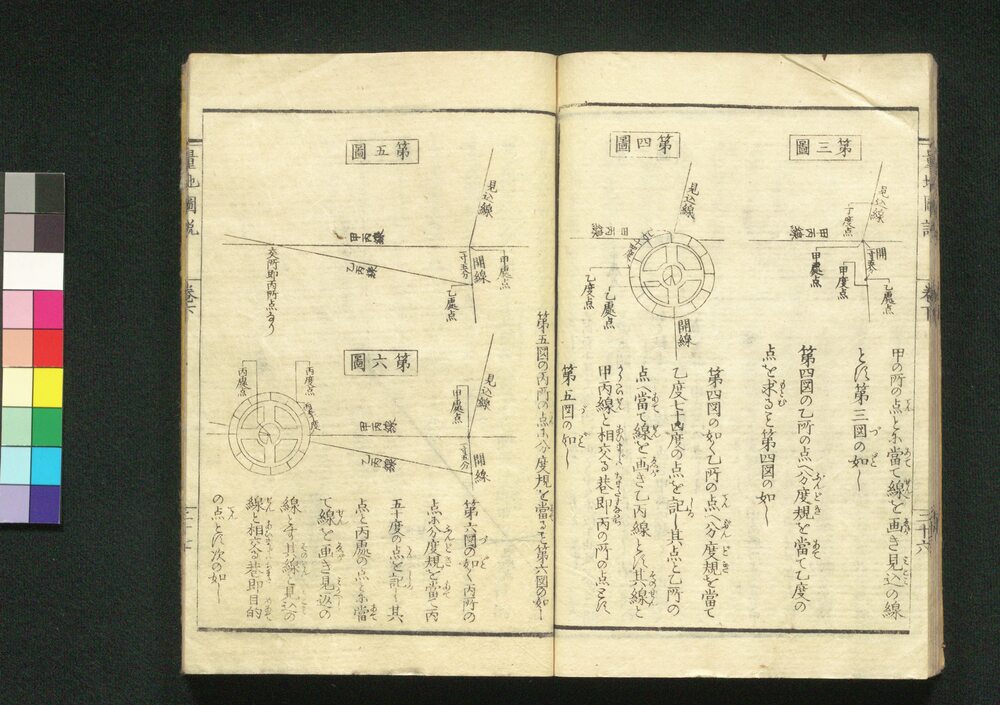 量地圖説
卷下
三十六
第三圖
見込線
丁度点
甲丙線
開
甲處点
甲度点
乙處点
第四圖
見込線
甲丙線
乙度点
乙處点
開線
甲の所の点と尓當て線を画き見込の線
とす第三図の如し
第四図の乙所の点へ分度規を當て乙度の
点を求ると第四図の如し
第四図の如く乙所の点へ分度規を當て
乙度七十四度の点を記し其点と乙所の
点へ當て線を画き乙丙線とす其線と
甲丙線と相交る巷即丙の所の点とす
第五図の如し
第五圖
見込線
甲丙線
乙丙線
開線
甲處点
乙處点
交所即丙所点なり
第五図の丙所の点尓分度規を當ると第六図の如し
第六圖
見込線
丙度点
丙處点
甲處点
甲丙線
乙丙線
開線
第六図の如く丙所の
点尓分度規を當て丙
五十度の点を記し其
点と丙處の点と尓當
て線を画き見返の
線とす其線と見込の
線と相交る巷即目的
の点とす次の如し
量地圖説
卷下